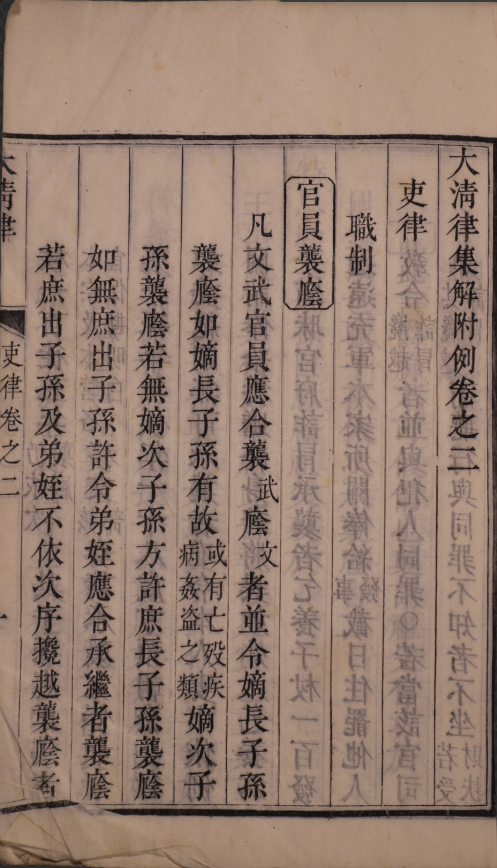 大清律集解附例卷之二
吏律
職制
官員襲廕
凡文武官員應合襲武廕文者並令嫡長子孫
襲廕如嫡長子孫有故或有亡歿疾病姦盜之類嫡次子
孫襲廕若無嫡次子孫方許庶長子孫襲廕
如無庶出子孫許令弟姪應合承繼者襲廕
若庶出子孫及弟姪不依次序攙越襲廕者
大清律
吏律卷之二
一